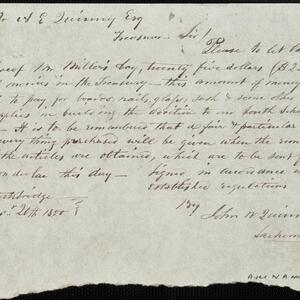 To A E Quinney Esq
Treasurer – Sir!
Please to let
of Mr Miller's boy, twenty five dollars ($2
monies in the Treasury – this amount of money
to pay for boards, nails, glass, sash & some other
in building the addition to our south School
– It is to be remembered that a fair & particular
every thing purchased will be given when the
the articles are obtained, which are to be sent
this day – signed in accordance
established regulations
Stockbridge
20th 1850
John W Quinn
Sachem